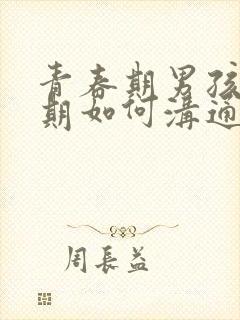 青春期男孩
期如何溝通
周長益